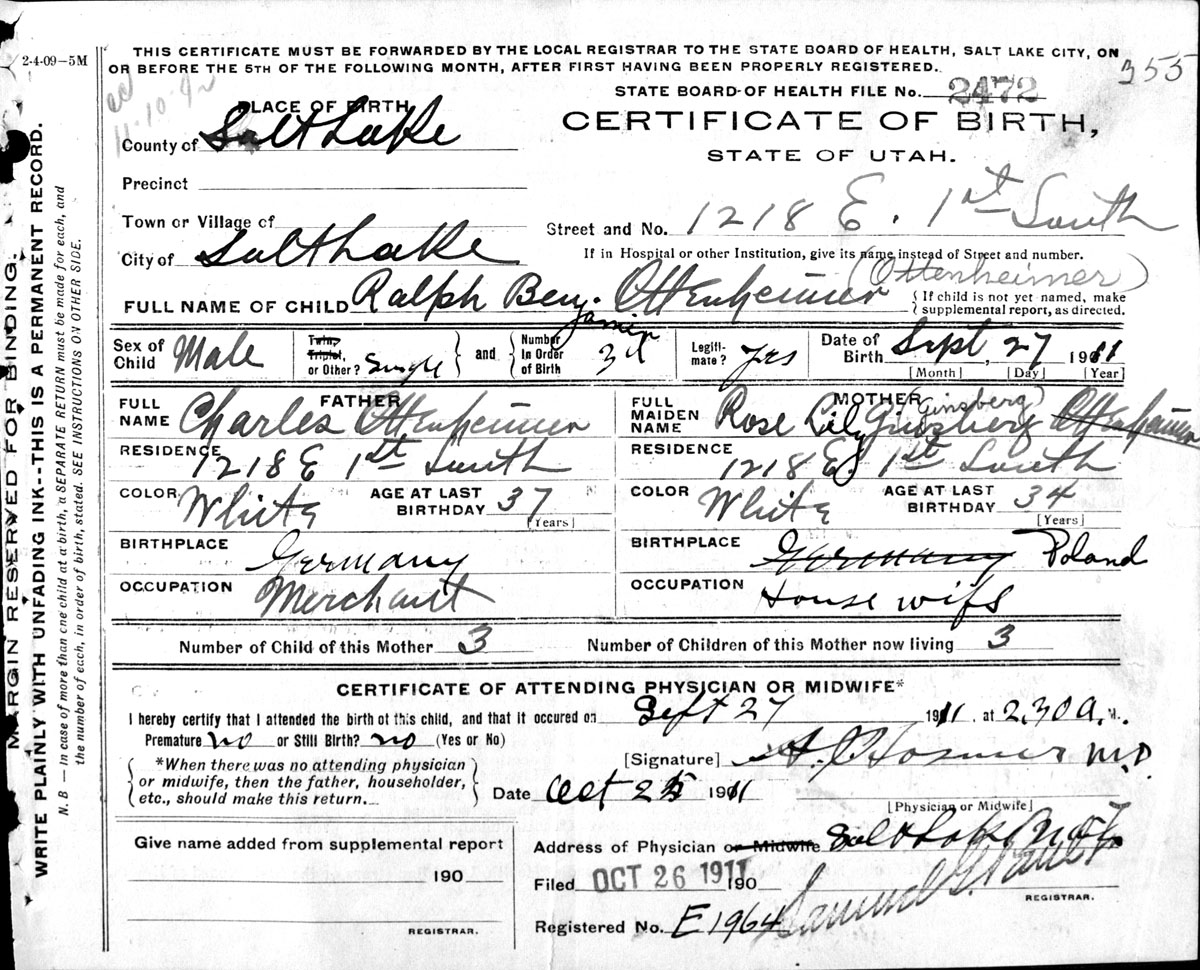 2-4-09—5M
THIS CERTIFICATE MUST BE FORWARDED BY THE LOCAL REGISTRAR TO THE STATE BOARD OF HEALTH, SALT LAKE CITY, ON
OR BEFORE THE 5TH OF THE FOLLOWING MONTH, AFTER FIRST HAVING BEEN PROPERLY REGISTERED.
355
STATE BOARD OF HEALTH FILE No. 2472
11-10-42
PLACE OF BIRTH
CERTIFICATE OF BIRTH,
County of Salt Lake
STATE OF UTAH.
Precinct
Town or Village of
Street and No. 1218 E. 1st South
City of Salt Lake
If in Hospital or other Institution, give its name instead of Street and number.
(Ottenheimer)
FULL NAME OF CHILD Ralph Benjamin Ottenheimer
{ If child is not yet named, make
supplemental report, as directed.
Sex of Child Male
Twin, Triplet, or Other? Single
and
Number In Order of Birth 3d
Legiti-mate? Yes
Date of Birth Sept, 27 1911
[Month] [Day] [Year]
FATHER
FULL NAME Charles Ottenheimer
RESIDENCE 1218 E 1st South
COLOR White AGE AT LAST BIRTHDAY 37
[Years]
BIRTHPLACE Germany
OCCUPATION Merchant
MOTHER
FULL MAIDEN NAME Rose Lily Ginsberg (Ginsberg) Ottenheimer
RESIDENCE 1218 E. 1st South
COLOR White AGE AT LAST BIRTHDAY 34
[Years]
BIRTHPLACE Germany Poland
OCCUPATION House wife
Number of Child of this Mother 3 Number of Children of this Mother now living 3
CERTIFICATE OF ATTENDING PHYSICIAN OR MIDWIFE*
I hereby certify that I attended the birth of this child, and that it occured on Sept 27 1911, at 2,30 a. M.
Premature no or Still Birth? no (Yes or No)
*When there was no attending physician
or midwife, then the father, householder,
etc., should make this return.
[Signature] Hosmer M.D.
Date Oct 25 1911
[Physician or Midwife]
Give name added from supplemental report
190
REGISTRAR.
Address of Physician or Midwife Salt Lake
Filed OCT 26 1911 190
Samuel G. Paul
REGISTRAR.
Registered No. E1964
MARGIN RESERVED FOR BINDING.
WRITE PLAINLY WITH UNFADING INK--THIS IS A PERMANENT RECORD.
N. B — In case of more than one child at a birth, a SEPARATE RETURN must be made for each, and
the number of each, in order of birth, stated. SEE INSTRUCTIONS ON OTHER SIDE.